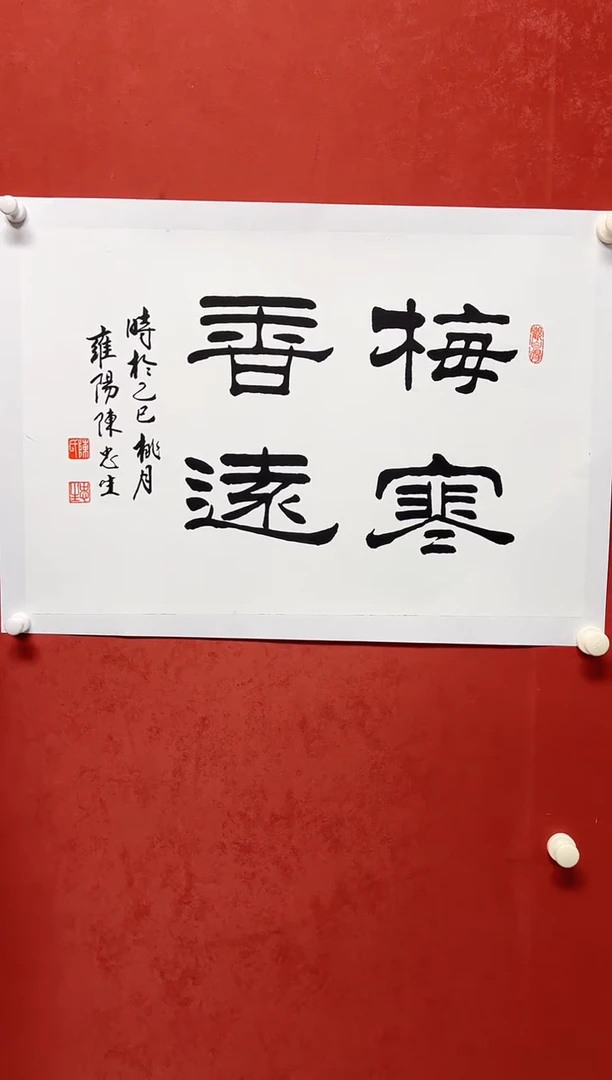 梅寒
香遠
時於乙巳桃月
雍陽陳忠生